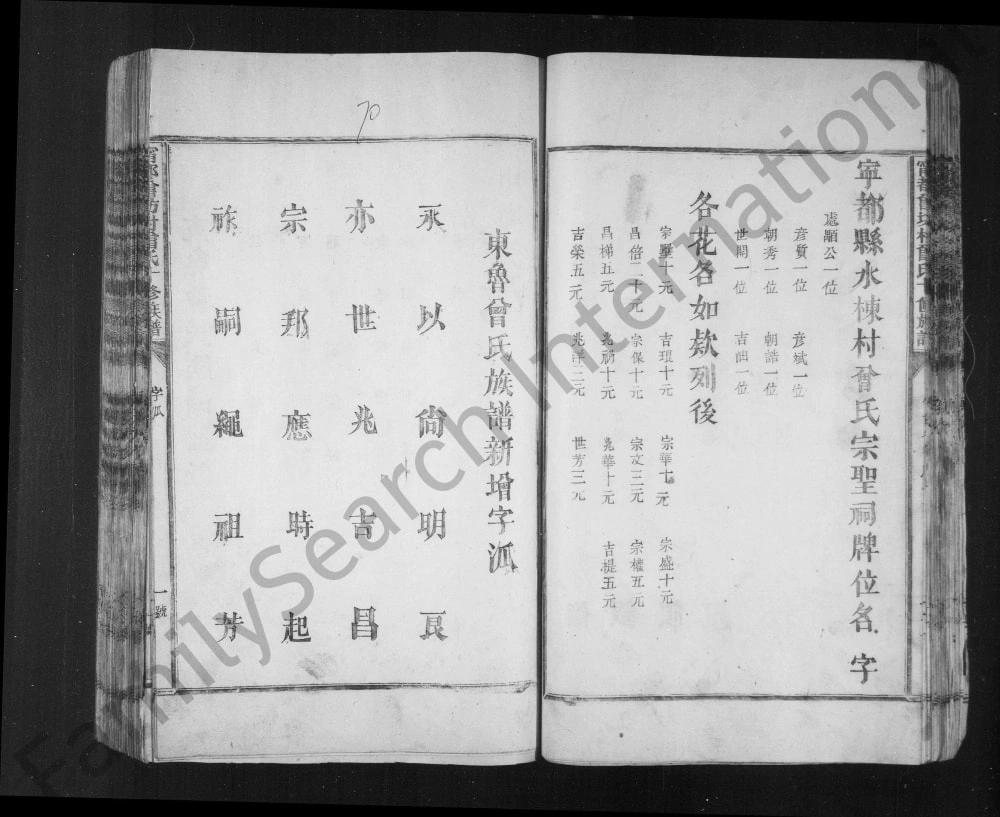 寧都縣水棟村曾氏宗聖祠牌位名字
處顯公一位
彦質一位 彦斌一位
朝秀一位 朝誥一位
世開一位 吉詘一位
各花名如欵列後
宗聖十元 吉琨十元 宗華七元 宗盛十元
昌倍二十元 宗保十元 宗文三元 宗權五元
昌梯五元 兆禎十元 兆華十元 吉樞五元
吉榮五元 兆洋三元 世芳三元
東魯曾氏族譜新增字派
永以尙明良
亦世兆吉昌
宗邦應時起
祚嗣繩祖芳
字派
一號
70
FamilySearch International